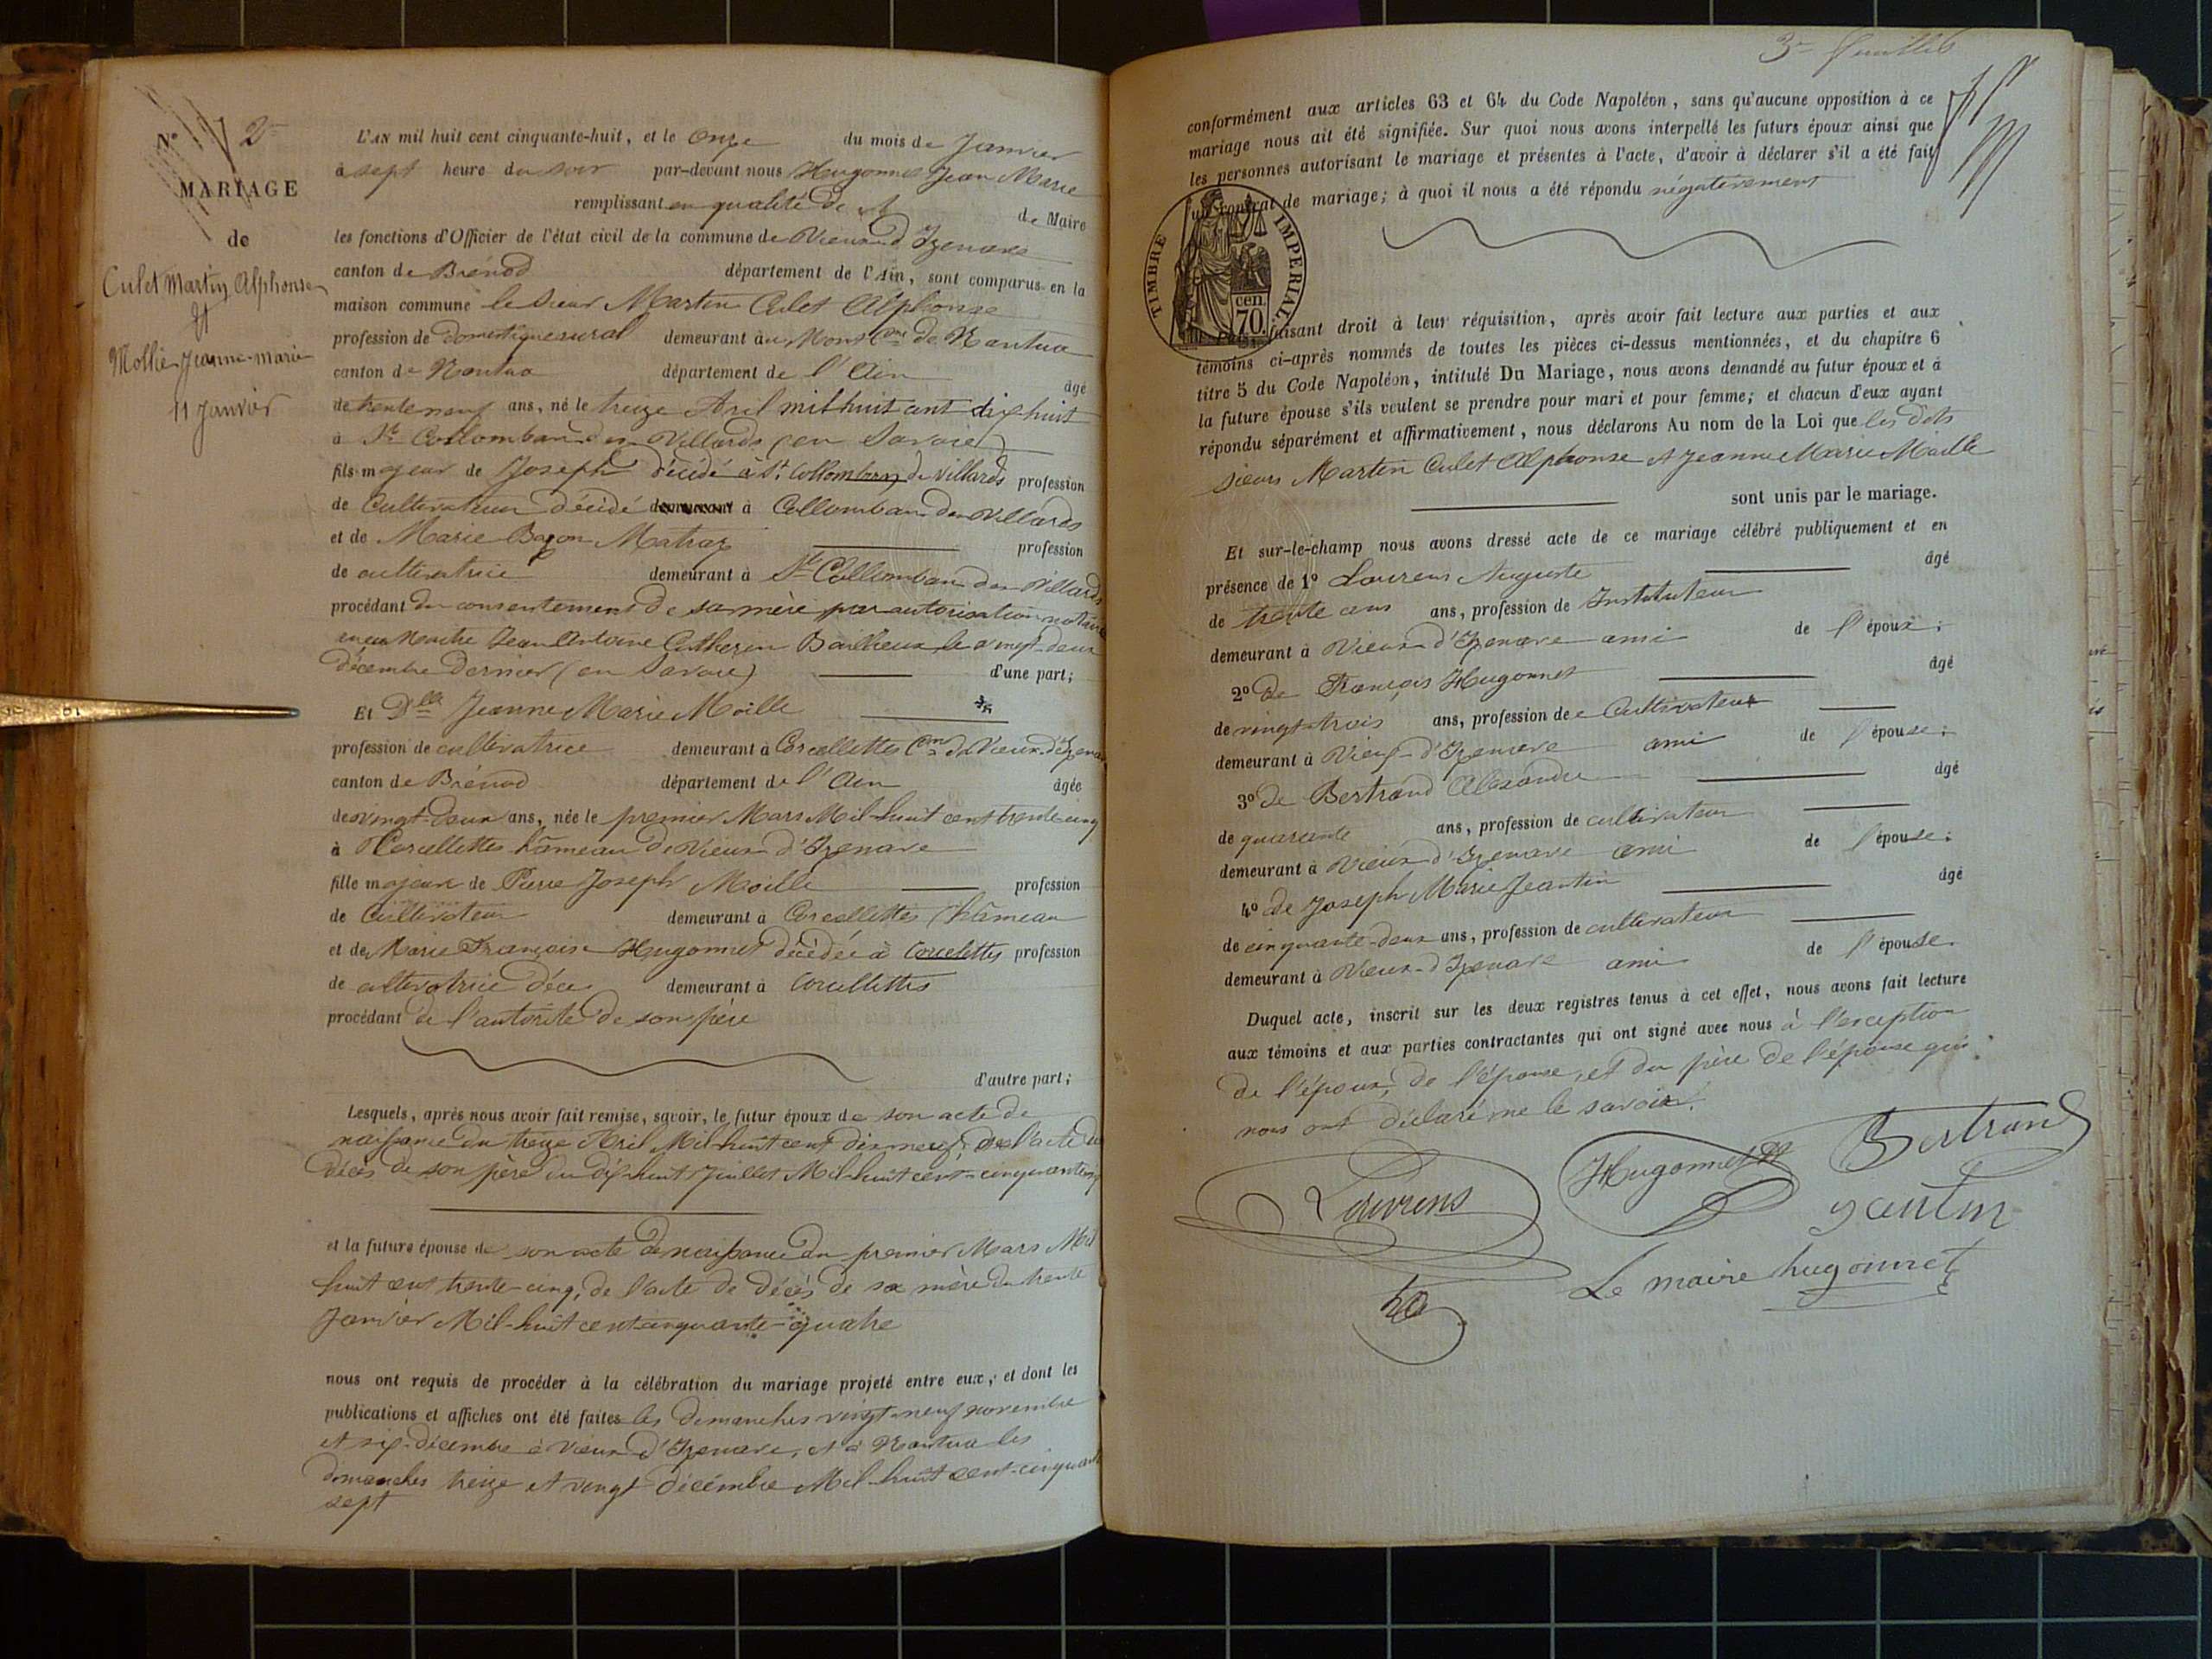 N° 2
MARIAGE
de
Culet Martin Alphonse
et
Mollie Jeanne-marie
11 Janvier
L'AN mil huit cent cinquante-huit, et le onze du mois de Janvier
à sept heure du soir par-devant nous Hugonnet Jean Marie
remplissant en qualité de de Maire
les fonctions d'Officier de l'état civil de la commune de Vieux d'Izenave
canton de Brénod département de l'Ain, sont comparus en la
maison commune le Sieur Martin Culet Alphonse
profession de domestique rural demeurant au Mont Cne de Nantua
canton de Nantua département de l'Ain âgé
de trente neuf ans, né le treize Avril mil huit cent dix huit
à St Collomban des Villards (en Savoie)
fils majeur de Joseph décédé à St Collomban de Villards profession
de Cultivateur décédé demeurant à Collomban des Villards
et de Marie Bazon Matraz profession
de cultivatrice demeurant à St Collomban des Villards
procédant du consentement de sa mère par autorisation notariée
Maitre Jean Antoine le vingt-deux
décembre dernier (en Savoie) d'une part;
Et Dlle Jeanne Marie Moille
profession de cultivatrice demeurant à Corcellettes Cne de Vieux d'Izenave
canton de Brénod département de l'Ain âgée
de vingt-deux ans, née le premier Mars Mil-huit cent trente cinq
à Corcellettes hâmeau de Vieux d'Izenave
fille majeure de Pierre Joseph Moille profession
de Cultivateur demeurant à Corcellettes (hâmeau
et de Marie Françoise Hugonnet décédée à Corcelettes profession
de cultivatrice déce demeurant à Corcellettes
procédant de l'autorité de son père
d'autre part;
Lesquels, après nous avoir fait remise, savoir, le futur époux de son acte de
naissance du treize Avril Mil-huit cent dix neuf, de l'acte de
décès de son père du dix-huit Juillet Mil-huit cent-cinquante cinq
et la future épouse de son acte de naissance du premier Mars Mil
huit cent trente-cinq, de l'acte de décès de sa mère du trente
Janvier Mil-huit cent cinquante-quatre
nous ont requis de procéder à la célébration du mariage projeté entre eux, et dont les
publications et affiches ont été faites les dimanches vingt-neuf novembre
et six décembre à Vieux d'Izenave, et à Nantua les
dimanches treize et vingt décembre Mil-huit cent-cinquante
sept
3e feuillet
conformément aux articles 63 et 64 du Code Napoléon, sans qu'aucune opposition à ce
mariage nous ait été signifiée. Sur quoi nous avons interpellé les futurs époux ainsi que
les personnes autorisant le mariage et présentes à l'acte, d'avoir à déclarer s'il a été fait
un contrat de mariage; à quoi il nous a été répondu négativement
TIMBRE IMPERIAL
cen.
70.
faisant droit à leur réquisition, après avoir fait lecture aux parties et aux
témoins ci-après nommés de toutes les pièces ci-dessus mentionnées, et du chapitre 6
titre 5 du Code Napoléon, intitulé Du Mariage, nous avons demandé au futur époux et à
la future épouse s'ils veulent se prendre pour mari et pour femme; et chacun d'eux ayant
répondu séparément et affirmativement, nous déclarons Au nom de la Loi que les dits
sieurs Martin Culet Alphonse et Jeanne Marie Moille
sont unis par le mariage.
Et sur-le-champ nous avons dressé acte de ce mariage célébré publiquement et en
présence de 1° Laurens Auguste âgé
de trente ans ans, profession de Instituteur
demeurant à Vieux d'Izenave ami de l'époux;
2° de François Hugonnet âgé
de vingt-trois ans, profession de Cultivateur
demeurant à Vieux-d'Izenave ami de l'épouse;
3° de Bertrand Alexandre âgé
de quarante ans, profession de cultivateur
demeurant à Vieux d'Izenave ami de l'épouse;
4° de Joseph Marie Jeantin âgé
de cinquante-deux ans, profession de cultivateur
demeurant à Vieux-d'Izenave ami de l'épouse.
Duquel acte, inscrit sur les deux registres tenus à cet effet, nous avons fait lecture
aux témoins et aux parties contractantes qui ont signé avec nous à l'exception
de l'époux, de l'épouse, et du père de l'épouse qui
nous ont déclaré ne le savoir.
Laurens
Hugonnet
Bertrand
Le maire hugonnet